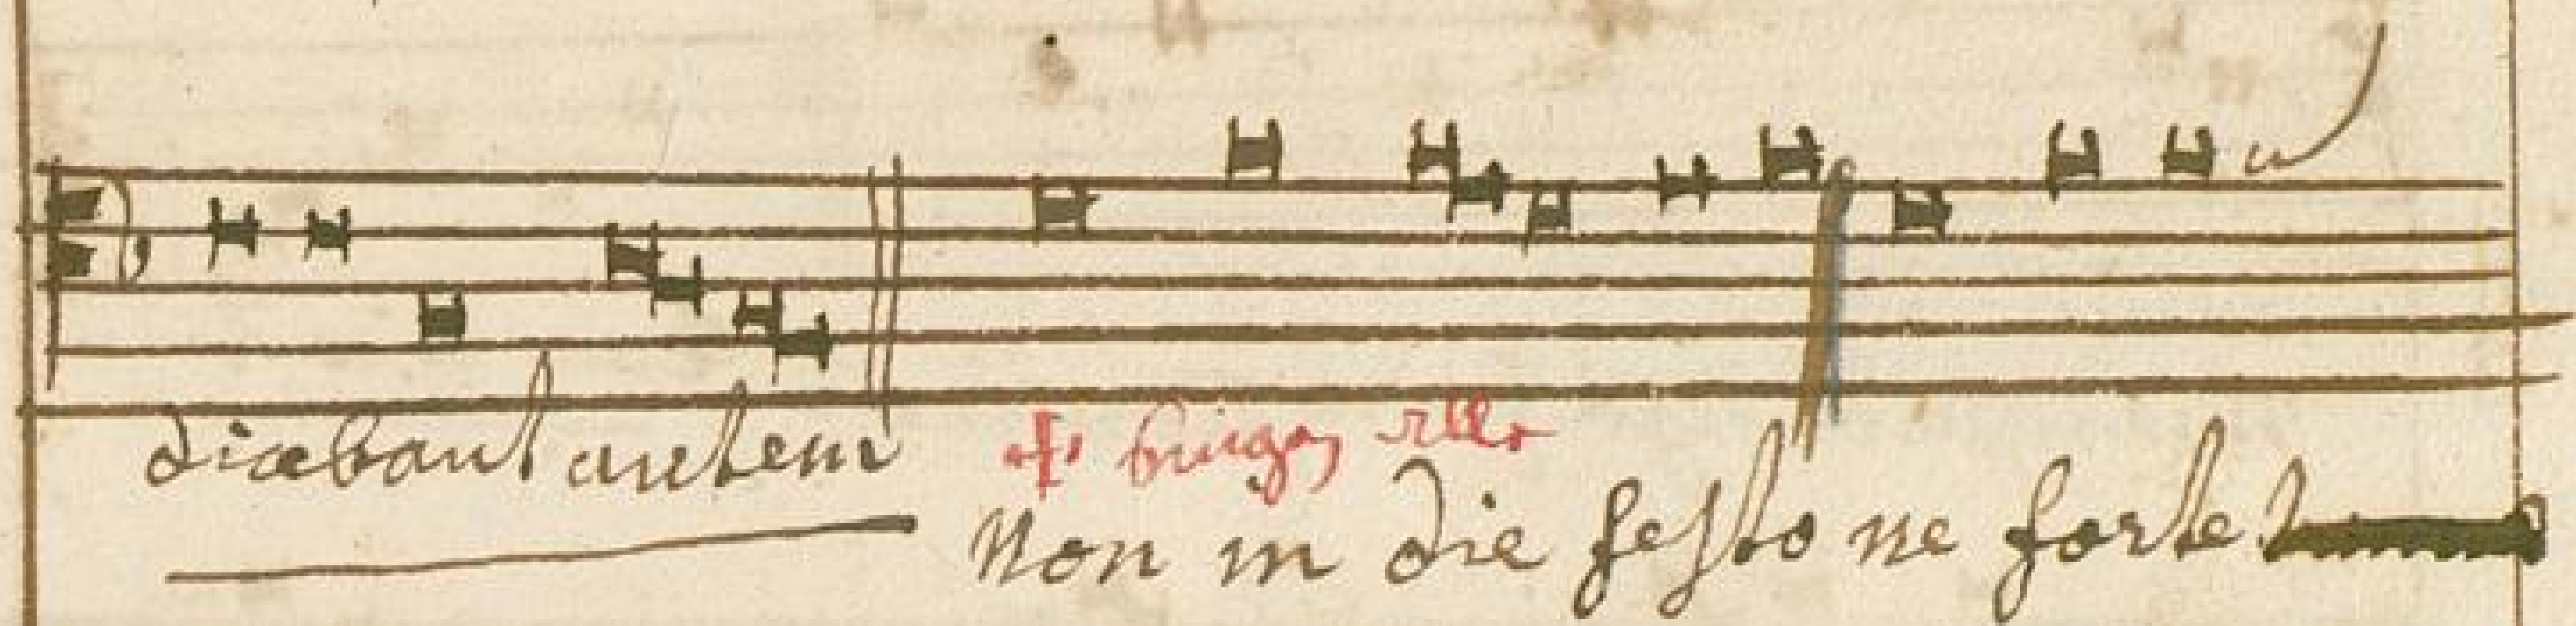 dicebant autem
Non in die festo ne forte